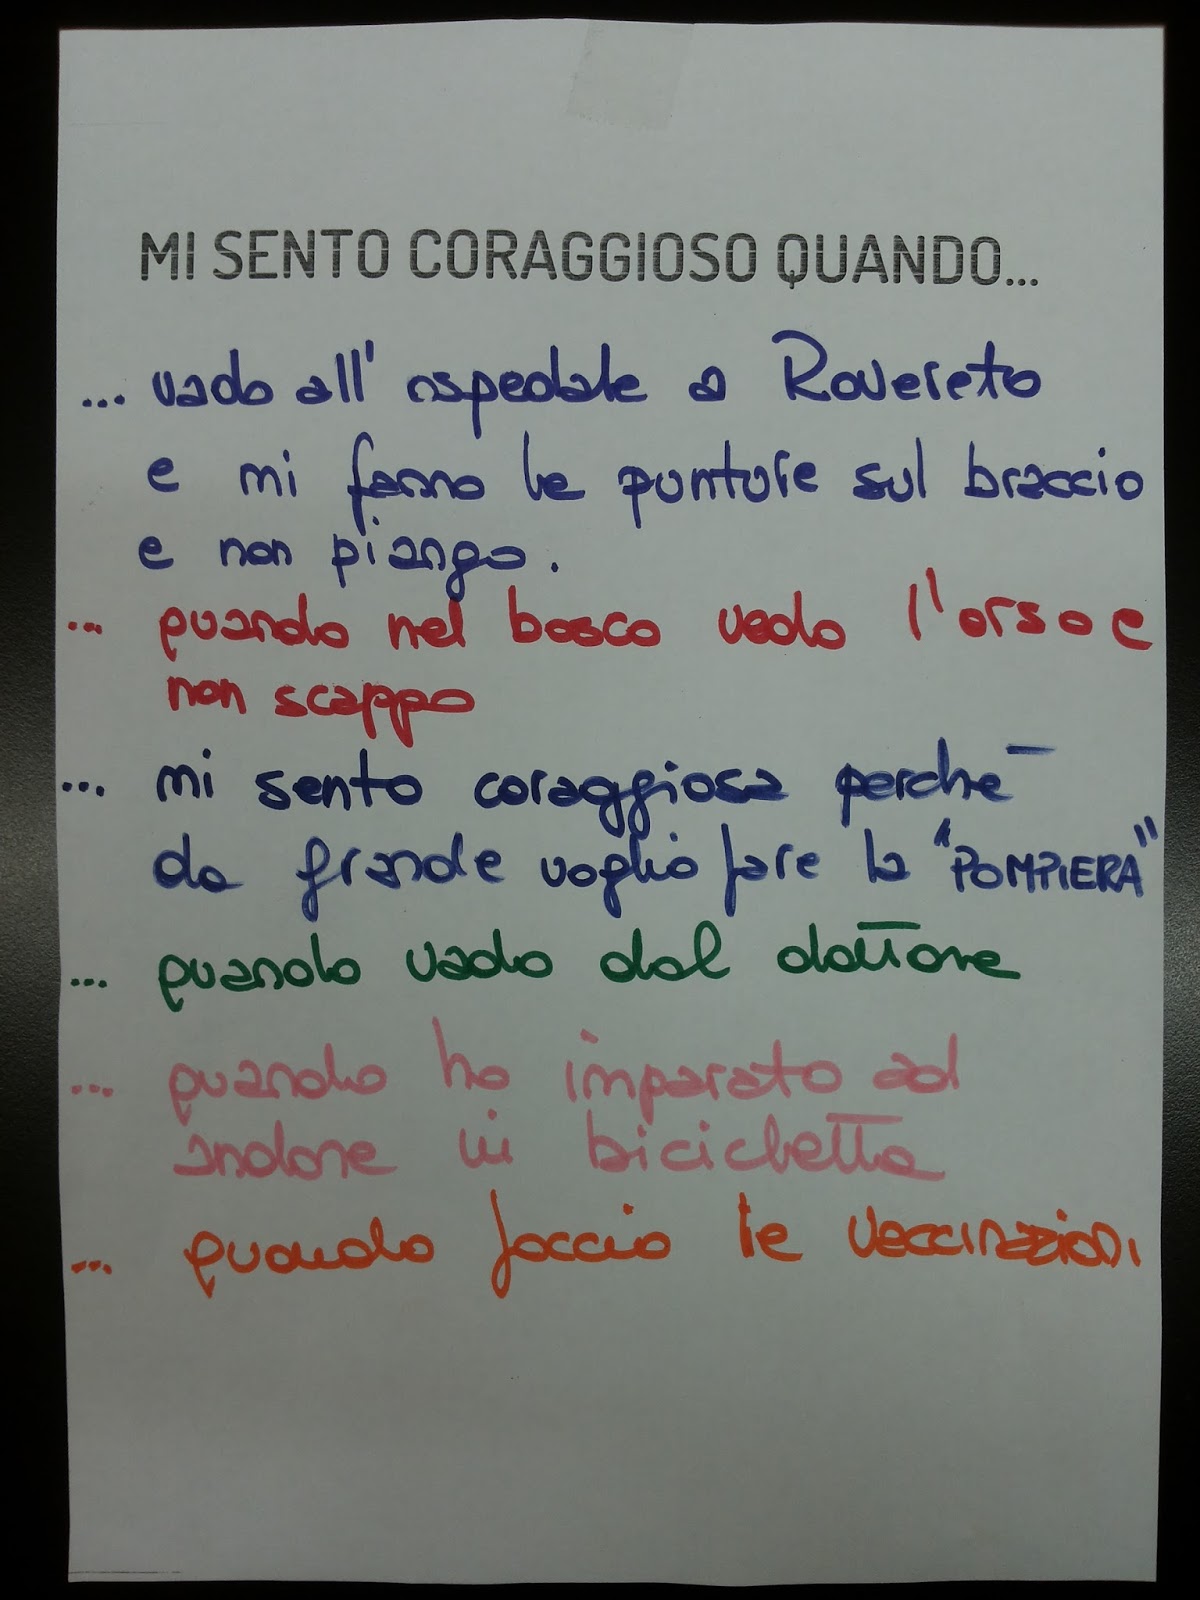 MI SENTO CORAGGIOSO QUANDO...
... vado all' ospedale a Rovereto
e mi fanno le punture sul braccio
e non piango.
... quando nel bosco vedo l'orso e
non scappo
... mi sento coraggiosa perchē
da grande voglio fare la "POMPIERA"
... quando vado dal dottore
... quando ho imparato ad
andare in bicicletta
... quando faccio le vaccinazioni